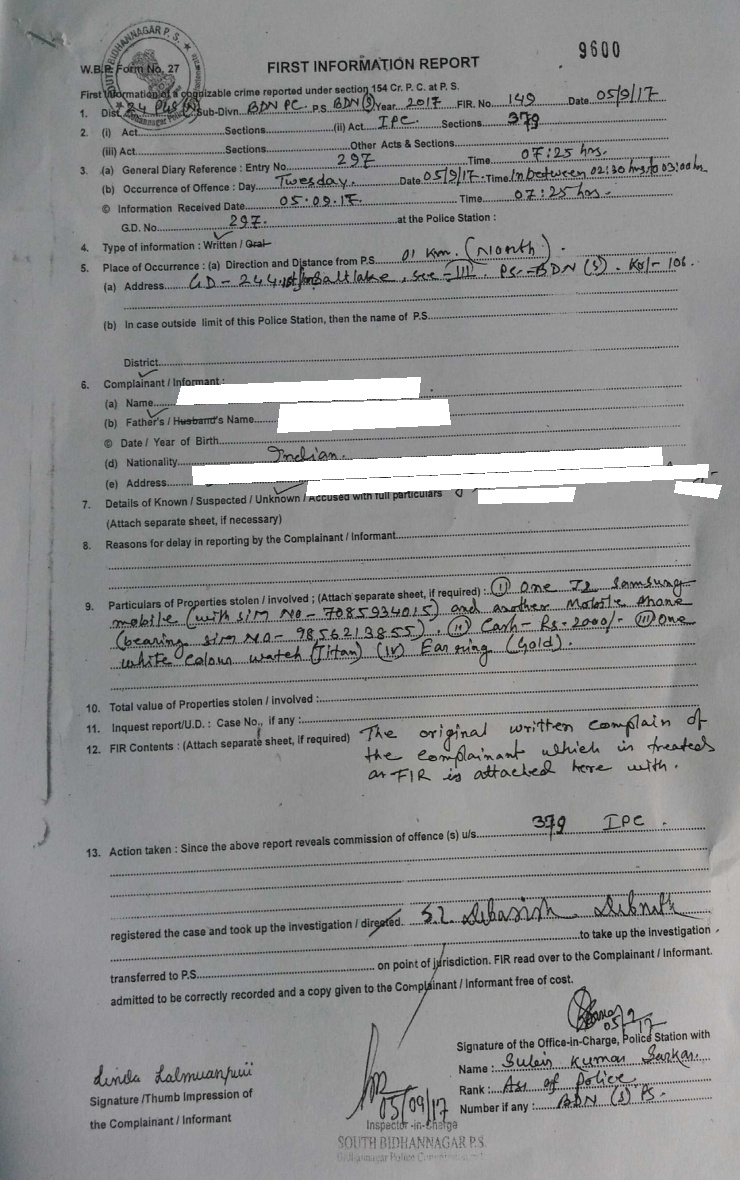 9600
W.B.P. Form No. 27
FIRST INFORMATION REPORT
SOUTH BIDHANNAGAR P. S.
First Information of a cognizable crime reported under section 154 Cr. P. C. at P. S.
1. Dist. 24 PGS (N) Sub-Divn. BDN PC. P.S. BDN (S) Year 2017 FIR. No. 149 Date 05/9/17
2. (i) Act Sections (ii) Act IPC. Sections 379
(iii) Act Sections Other Acts & Sections
3. (a) General Diary Reference : Entry No. 297 Time 07:25 hrs.
(b) Occurrence of Offence : Day Twesday. Date 05/9/17. Time In between 02:30 hrs. to 03:00 hrs
© Information Received Date 05.09.17. Time 07:25 hrs.
G.D. No. 297. at the Police Station :
4. Type of information : Written / Oral
5. Place of Occurrence : (a) Direction and Distance from P.S. 01 Km. (North).
(a) Address GD - 244, Saltlake, sec - III. PS. - BDN (S). Kol - 106.
(b) In case outside limit of this Police Station, then the name of P.S.
District
6. Complainant / Informant :
(a) Name
(b) Father's / Husband's Name
© Date / Year of Birth
(d) Nationality Indian.
(e) Address
7. Details of Known / Suspected / Unknown / Accused with full particulars
(Attach separate sheet, if necessary)
8. Reasons for delay in reporting by the Complainant / Informant
9. Particulars of Properties stolen / involved ; (Attach separate sheet, if required) : (I) One J2 Samsung
mobile (with sim No - 7085934015) and another Mobile Phone
(bearing sim No - 9856213855). (II) Cash - Rs. 2000/- (III) One
white Colour watch (Titan) (IV) Ear ring (Gold).
10. Total value of Properties stolen / involved :
11. Inquest report/U.D. : Case No., if any :
12. FIR Contents : (Attach separate sheet, if required) The original written complain of
the complainant which is treated
as FIR is attached here with.
13. Action taken : Since the above report reveals commission of offence (s) u/s 379 IPC.
registered the case and took up the investigation / directed. S.I. Debasish Debnath
to take up the investigation
transferred to P.S. on point of jurisdiction. FIR read over to the Complainant / Informant.
admitted to be correctly recorded and a copy given to the Complainant / Informant free of cost.
05/9/17
Signature of the Office-in-Charge, Police Station with
Name : Kumar Sarkar.
Rank : ASI of Police
Number if any : BDN (S) PS.
Linda Lalmuanpuii
Signature /Thumb Impression of
the Complainant / Informant
05/09/17
Inspector-in-Charge
SOUTH BIDHANNAGAR P.S.
Bidhannagar Police